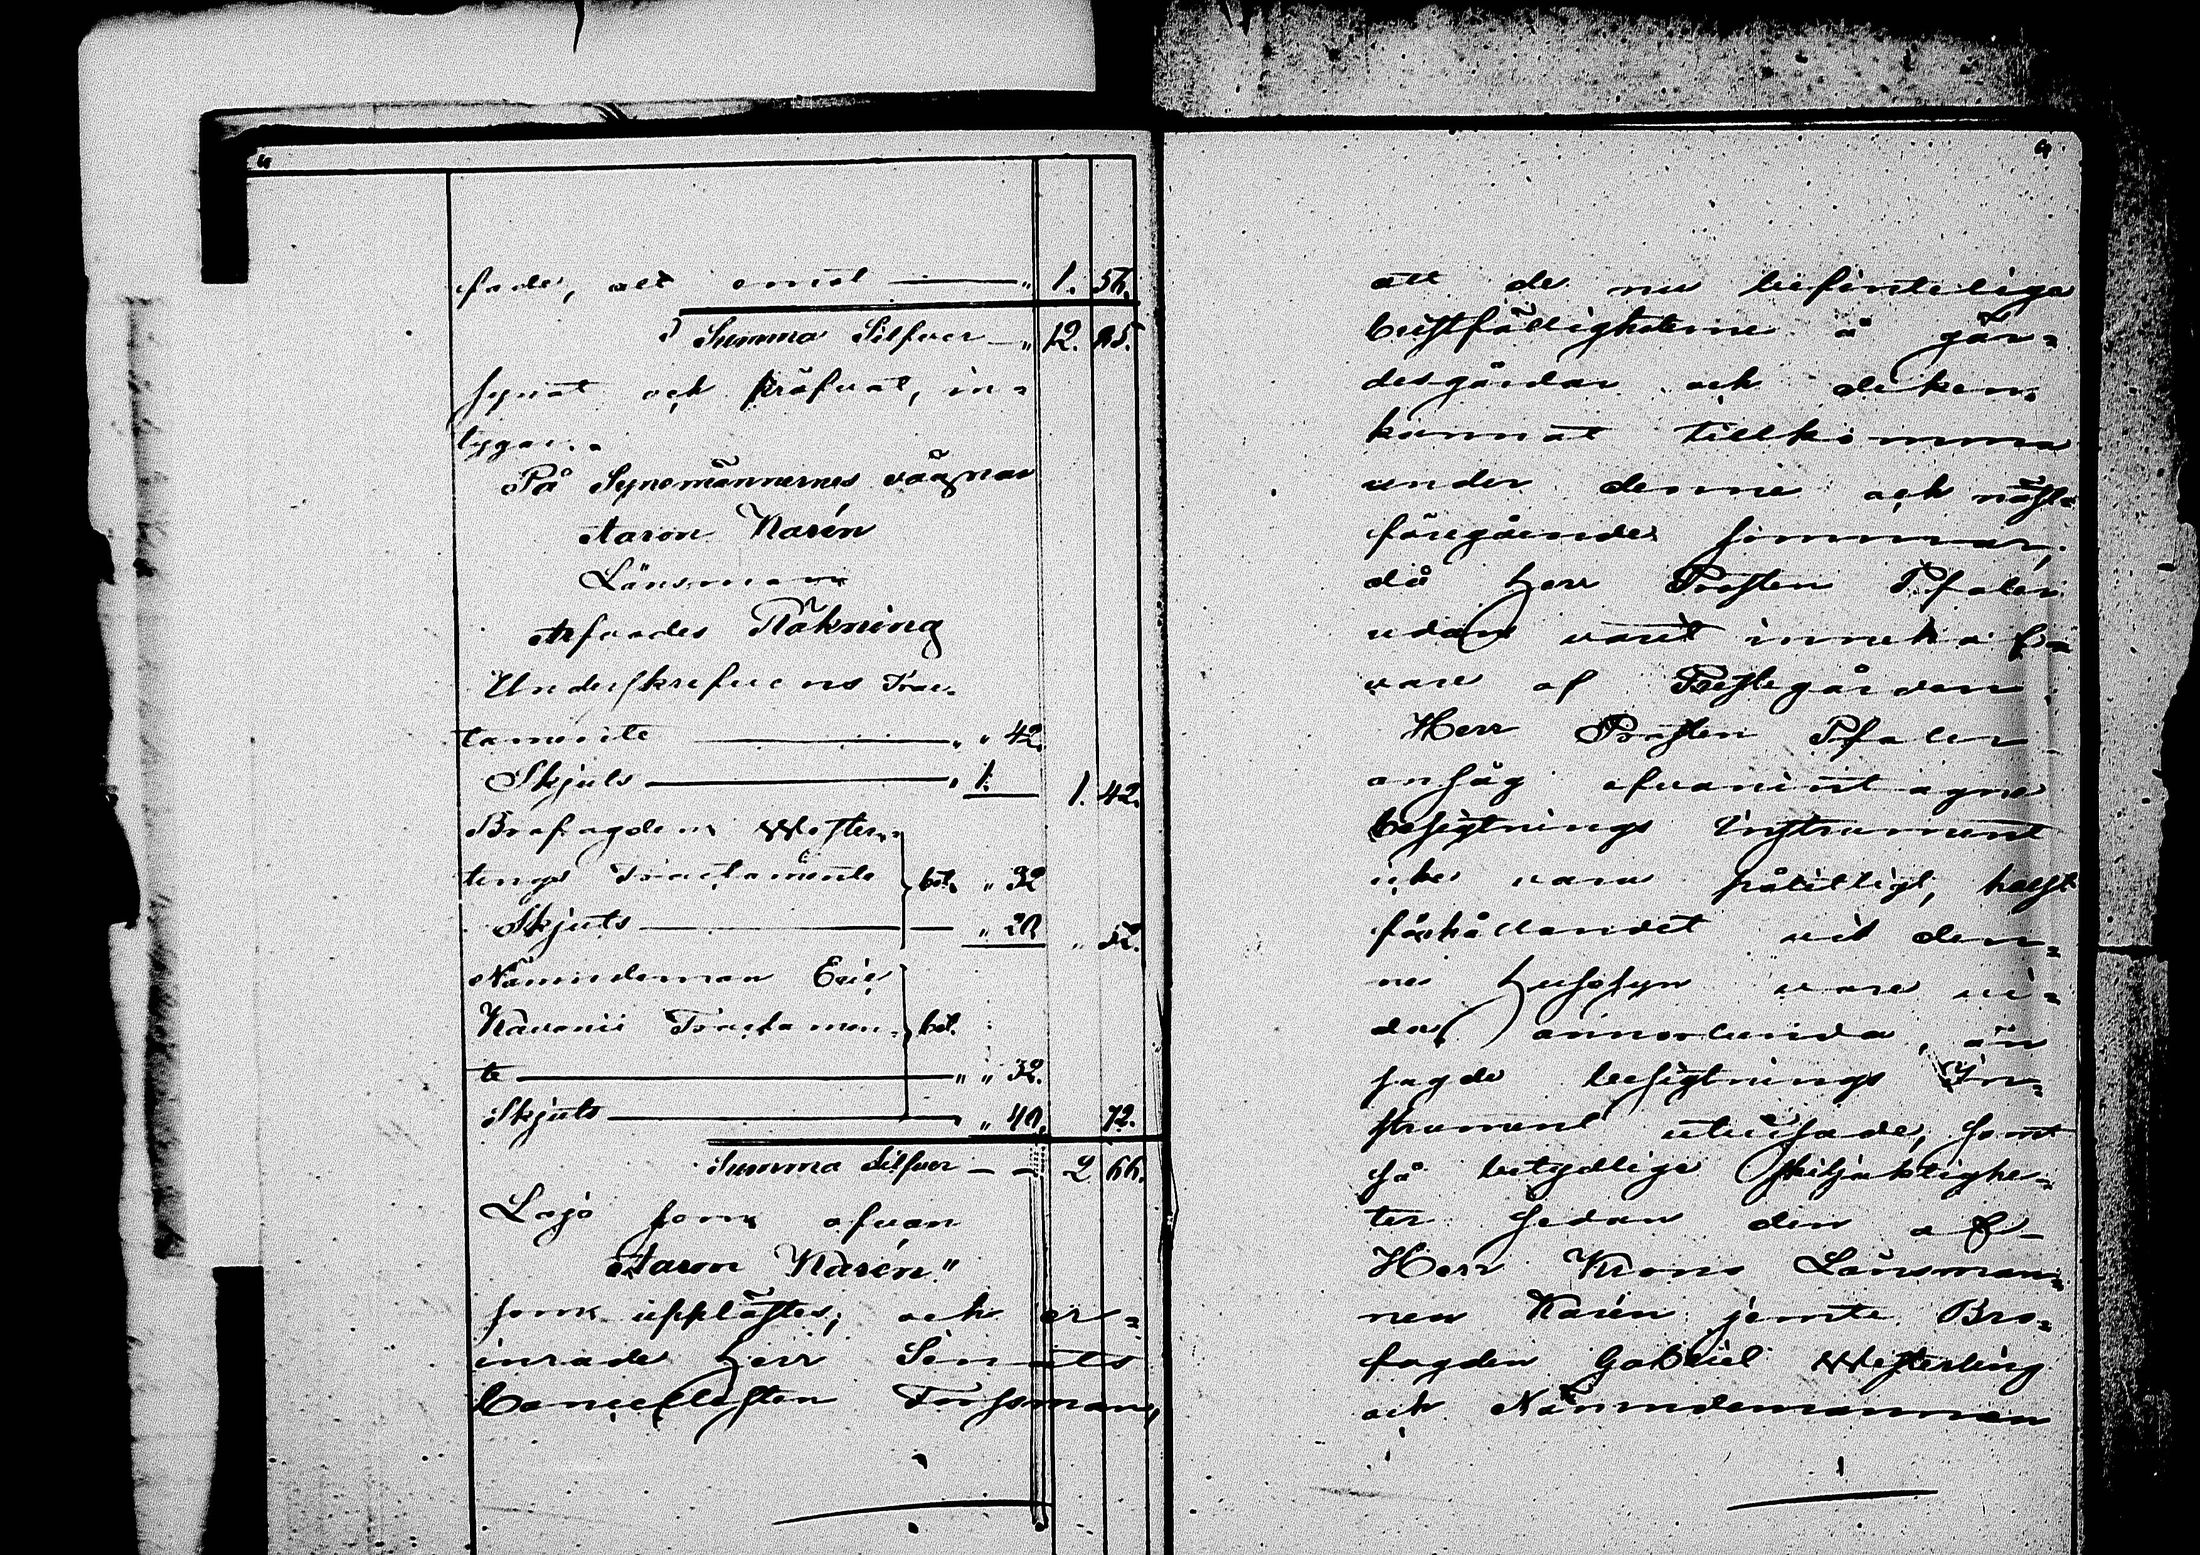 fade, allt emot — " 1. 56.
Summa Silfver — " 12. 25.
synat och pröfvat, in-
tygar.
På Synemännernes vägnar
Aaron Karén
Länsman
Arfvodes Räkning
Underskrefvens Trac-
tamente — " " 42.
Skjuts — " 1. 1. 42.
Brofogden Wester-
lings Tractamente bet. " 32
Skjuts — " 20 " 52.
Nämndeman Eric
Tractamen- bet.
te — " " 32.
Skjuts — " 40. 72.
Summa Silfver — — 2 66.
Lojo som ofvan
Aaron Karén."
som upplästes; och er-
inrade Herr Senats
Cancellisten Forssman,
att de nu befinteliga
bristfälligheterne å gär-
desgårdar och diken
kunnat tillkomma
under denne och näst-
föregående sommar,
då Herr Prosten Pfaler
redan varit inneha f-
vare af Prestegården.
Herr Prosten Pfaler
ansåg ofvanintagne
besigtnings Instrument
icke vara pålitligt, helst
förhållandet vid den-
ne husesyn vore vi-
da annorlunda, än
sagde besigtnings In-
strument utvisade, samt
så betydlige skiljaktighe-
ter sedan den af
Herr Krono Länsman-
nen Karén jemte Bro-
fogden Gabriel Westerling
och Nämndemannen